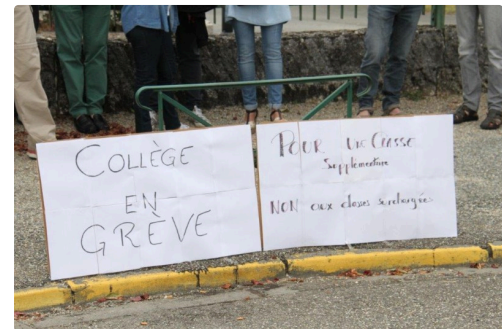 COLLÈGE
EN
GRÈVE
POUR Une Classe
Supplémentaire
NON aux classes surchargées